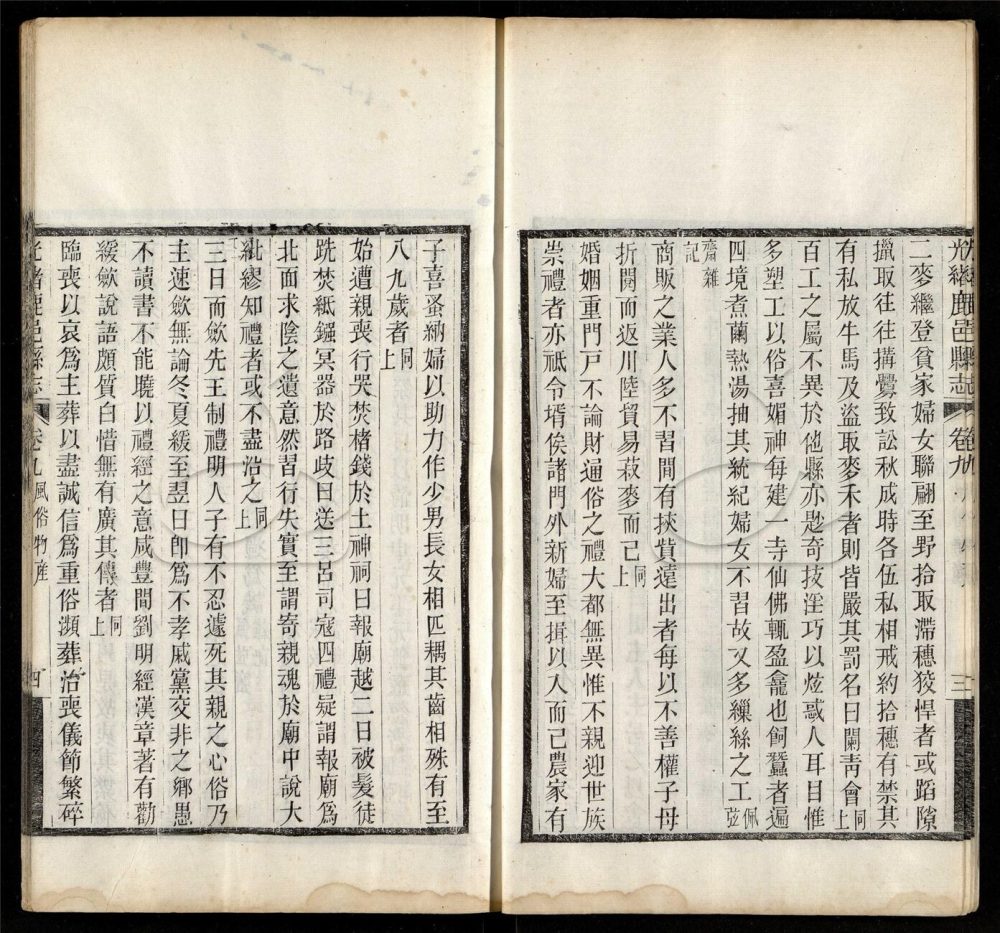 光緒鹿邑縣志 卷九 三
二麥繼登貧家婦女聯翩至野拾取滯穗狡悍者或蹈隙
攛取往往搆釁致訟秋成時各伍私相戒約拾穗有禁其
有私放牛馬及盜取麥禾者則皆嚴其罰名曰闌靑會同上
百工之屬不異於他縣亦尟奇技淫巧以炫惑人耳目惟
多塑工以俗喜媚神每建一寺仙佛輒盈龕也飼蠶者遍
四境煮繭熱湯抽其統紀婦女不習故又多繅絲之工佩弦
齋雜記
商販之業人多不習間有挾貲遠出者每以不善權子母
折閱而返川陸貿易菽麥而已同上
婚姻重門戸不論財通俗之禮大都無異惟不親迎世族
崇禮者亦祗令壻俟諸門外新婦至揖以入而已農家有
子喜蚤納婦以助力作少男長女相匹耦其齒相殊有至
八九歲者同上
始遭親喪行哭焚楮錢於土神祠曰報廟越二日被髮徒
跣焚紙鏹冥器於路歧曰送三呂司寇四禮疑謂報廟爲
北面求陰之遺意然習行失實至謂寄親魂於廟中說大
紕繆知禮者或不盡沿之同上
三日而歛先王制禮明人子有不忍遽死其親之心俗乃
主速歛無論冬夏緩至翌日卽爲不孝戚黨交非之鄉愚
不讀書不能曉以禮經之意咸豐間劉明經漢章著有勸
緩歛說語頗質白惜無有廣其傳者同上
臨喪以哀爲主葬以盡誠信爲重俗瀕葬治喪儀節繁碎
光緒鹿邑縣志 卷九 風俗物產 四